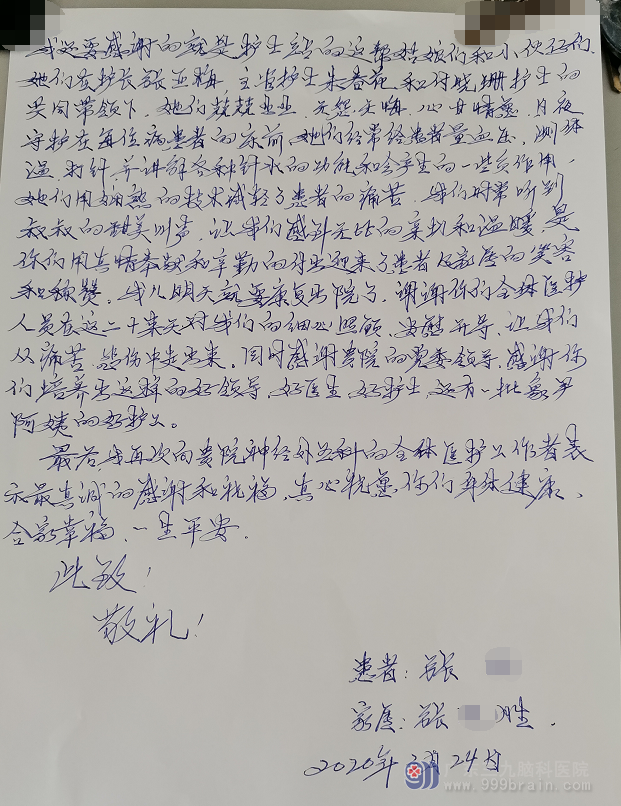 我还要感谢的就是护士站的这帮姑娘们和小伙
她们在护长张亚梅、主管护士朱春花和付晓珊护士的
共同带领下,她们兢兢业业、无怨无悔、心甘情愿、日夜
守护在每位病患者的床前,她们经常给患者量血压、测体
温、打针,并讲解各种针水的功能和会产生的一些负作用,
她们用娴熟的技术减轻了患者的痛苦,我们时常听到
叔叔的甜美叫声,让我们感到无比的亲切和温暖,是
你们用真情奉献和辛勤的付出迎来了患者及家属的笑容
和称赞。我儿明天就要康复出院了,谢谢你们全体医护
人员在这二十来天对我们的细心照顾、安慰开导,让我们
从痛苦、悲伤中走出来。同时感谢贵院的党委领导,感谢你
们培养出这样的好领导、好医生、好护士,还有一批象尹
阿姨的好护工。
最后我再次向贵院神经外三科的全体医护工作者表
示最真诚的感谢和祝福,真心祝愿你们身体健康、
合家幸福、一生平安。
此致!
敬礼!
患者:张
家属:张 胜.
2020年 月24日
三九脑科医院
www.999brain.com